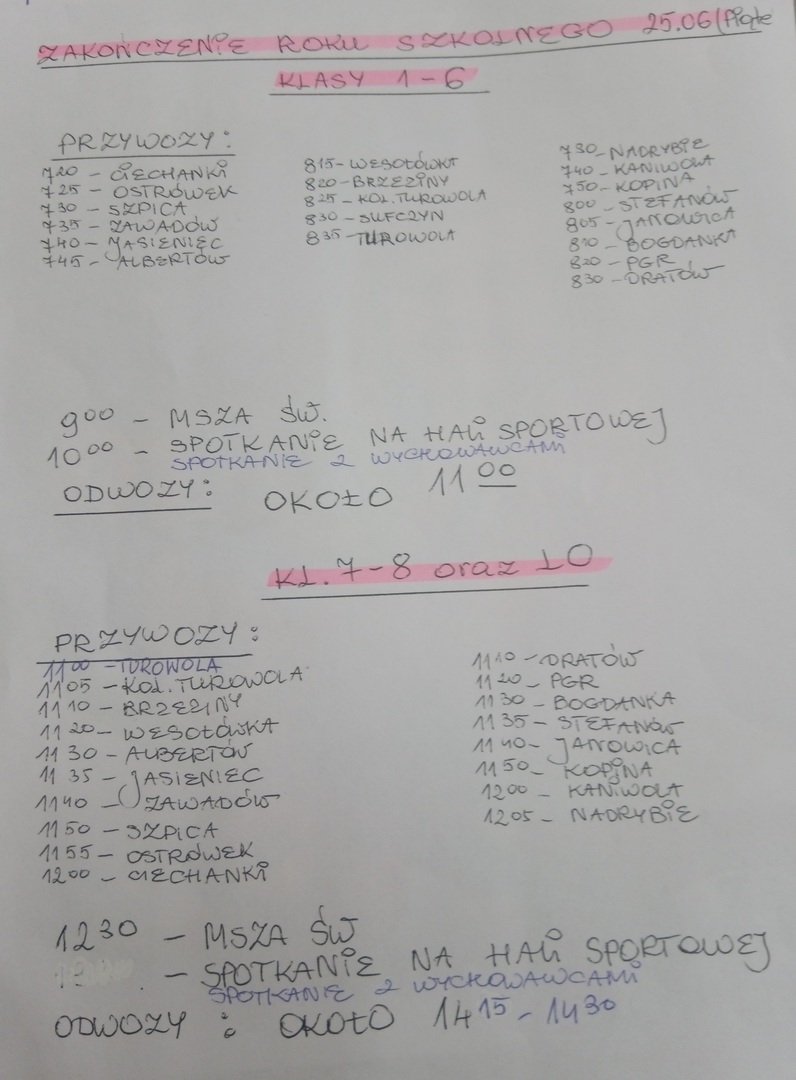 ZAKOŃCZENIE ROKU SZKOLNEGO 25.06 (Piąte
KLASY 1-6
PRZYWOZY:
720 - CIECHANKI
725 - OSTRÓWEK
730 - SZPICA
735 - ZAWADÓW
740 - JASIENIEC
745 - ALBERTÓW
815 - WESOŁÓWKA
820 - BRZEZINY
825 - KOL. TUROWOLA
830 - SUFCZYN
835 - TUROWOLA
730 - NADRYBIE
740 - KANIWOLA
750 - KOPINA
800 - STEFANÓW
805 - JANOWICA
810 - BOGDANKA
820 - PGR
830 - DRATÓW
900 - MSZA ŚW.
1000 - SPOTKANIE NA HALI SPORTOWEJ
SPOTKANIE Z WYCHOWAWCAMI
ODWOZY: OKOŁO 1100
KL. 7-8 oraz LO
PRZYWOZY:
1100 - TUROWOLA
1105 - KOL. TUROWOLA
1110 - BRZEZINY
1120 - WESOŁÓWKA
1130 - ALBERTÓW
1135 - JASIENIEC
1140 - ZAWADÓW
1150 - SZPICA
1155 - OSTRÓWEK
1200 - CIECHANKI
1110 - DRATÓW
1120 - PGR
1130 - BOGDANKA
1135 - STEFANÓW
1140 - JANOWICA
1150 - KOPINA
1200 - KANIWOLA
1205 - NADRYBIE
1230 - MSZA ŚW
- SPOTKANIE NA HALI SPORTOWEJ
SPOTKANIE Z WYCHOWAWCAMI
ODWOZY : OKOŁO 1415 - 1430